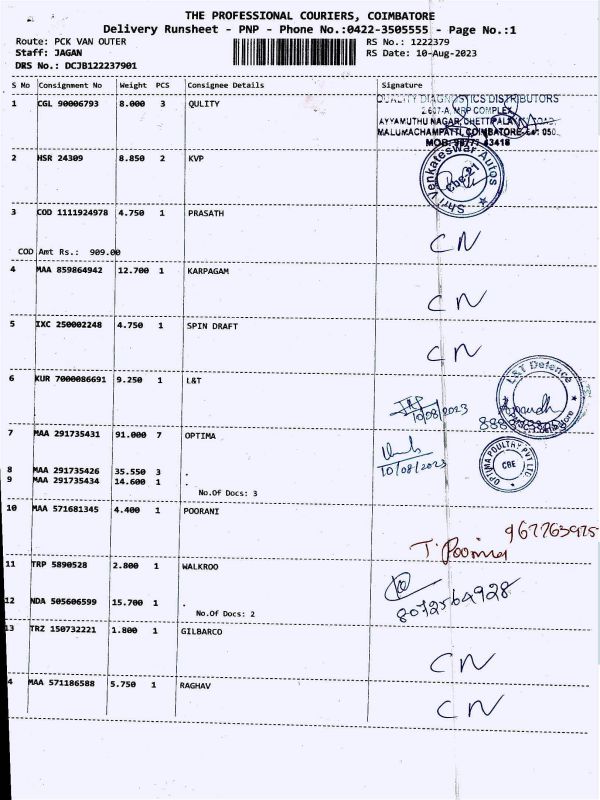 THE PROFESSIONAL COURIERS, COIMBATORE
Delivery Runsheet - PNP - Phone No.:0422-3505555 - Page No.:1
Route: PCK VAN OUTER RS No.: 1222379
Staff: JAGAN RS Date: 10-Aug-2023
DRS No.: DCJB122237901
S No Consignment No Weight PCS Consignee Details Signature
1 CGL 90006793 8.000 3 QULITY
QUALITY DIAGNOSTICS DISTRIBUTORS
2/607-A, MRP COMPLEX
AYYAMUTHU NAGAR, CHETTIPALAYAM ROAD,
MALUMACHAMPATTI, COIMBATORE 641 050.
MOB: 98771 43418
2 HSR 24309 8.850 2 KVP
Shri Venkateswar Autos
3 COD 1111924978 4.750 1 PRASATH
CN
COD Amt Rs.: 909.00
4 MAA 859864942 12.700 1 KARPAGAM
CN
5 IXC 250002248 4.750 1 SPIN DRAFT
CN
6 KUR 7000086691 9.250 1 L&T
L&T Defence
10/08/2023
7 MAA 291735431 91.000 7 OPTIMA
10/08/2023
OPTIMA POULTRY PVT LTD.
CBE
8 MAA 291735426 35.550 3 .
9 MAA 291735434 14.600 1 .
No.Of Docs: 3
10 MAA 571681345 4.400 1 POORANI
967763975
T. Poorna
11 TRP 5890528 2.800 1 WALKROO
8072564928
12 NDA 505606599 15.700 1 .
No.Of Docs: 2
13 TRZ 150732221 1.800 1 GILBARCO
CN
4 MAA 571186588 5.750 1 RAGHAV
CN